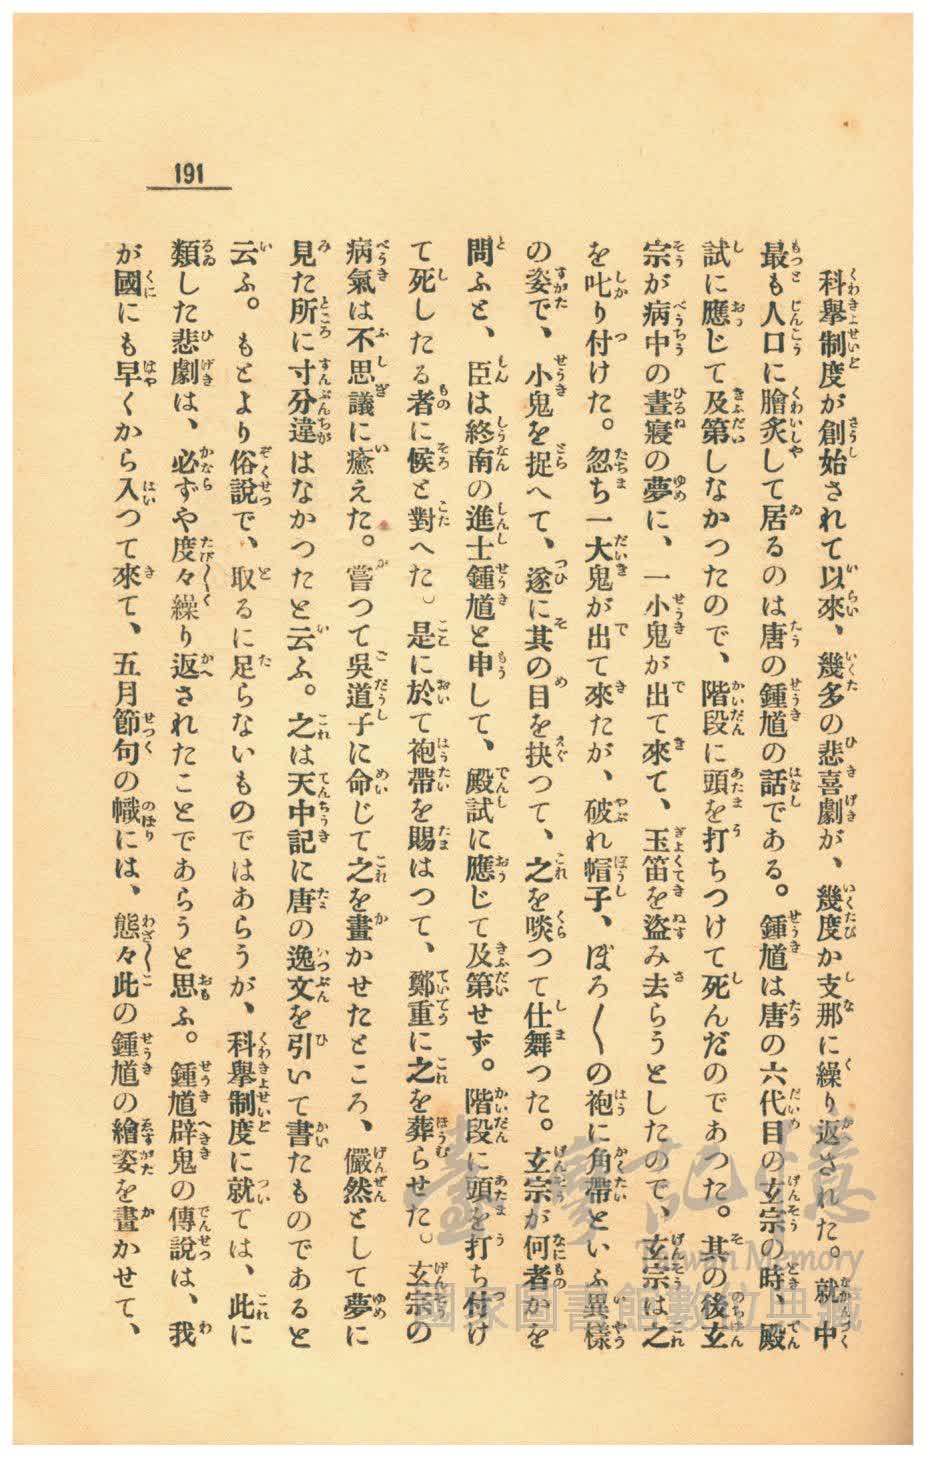 191
科擧制度が創始されて以來、幾多の悲喜劇が、幾度か支那に繰り返された。就中
最も人口に膾炙して居るのは唐の鍾馗の話である。鍾馗は唐の六代目の玄宗の時、殿
試に應じて及第しなかつたので、階段に頭を打ちつけて死んだのであつた。其の後玄
宗が病中の晝寢の夢に、一小鬼が出て來て、玉笛を盜み去らうとしたので、玄宗は之
を叱り付けた。忽ち一大鬼が出て來たが、破れ帽子、ぼろ〳〵の袍に角帶といふ異樣
の姿で、小鬼を捉へて、遂に其の目を抉つて、之を啖つて仕舞つた。玄宗が何者かを
問ふと、臣は終南の進士鍾馗と申して、殿試に應じて及第せず。階段に頭を打ち付け
て死したる者に候と對へた。是に於て袍帶を賜はつて、鄭重に之を葬らせた。玄宗の
病氣は不思議に癒えた。嘗つて吳道子に命じて之を畫かせたところ、儼然として夢に
見た所に寸分違はなかつたと云ふ。之は天中記に唐の逸文を引いて書たものであると
云ふ。もとより俗說で、取るに足らないものではあらうが、科擧制度に就ては、此に
類した悲劇は、必ずや度々繰り返されたことであらうと思ふ。鍾馗辟鬼の傳說は、我
が國にも早くから入つて來て、五月節句の幟には、態々此の鍾馗の繪姿を畫かせて、
臺灣記憶
Taiwan Memory
國家圖書館數位典藏